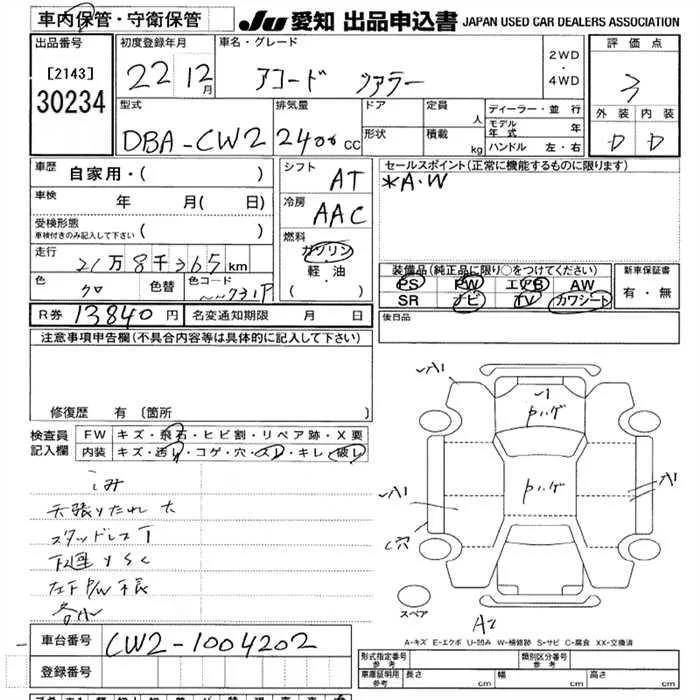 車内保管・守衛保管 JU 愛知 出品申込書 JAPAN USED CAR DEALERS ASSOCIATION
出品番号 [2143] 30234
初度登録年月 22 12月
車名・グレード アコード ツアラー
2WD・4WD
評価点 3
外装 D 内装 D
型式 DBA-CW2
排気量 2400 cc
ドア 形状
定員 人 積載 kg
ディーラー・並行
モデル年式 年
ハンドル 左・右
車歴 自家用・( )
車検 年 月( 日)
受検形態 車検付きのみ記入して下さい ( )
走行 21万8千365km
色 クロ 色替 色コード 731P
シフト AT
冷房 AAC
燃料 ガソリン 軽油 ( ・ )
セールスポイント(正常に機能するものに限ります)
*A・W
装備品(純正品に限り○をつけてください)
PS PW エアB AW
SR ナビ TV カワシート
新車保証書 有・無
R券 13840円 名変通知期限 月 日
後日品
注意事項申告欄(不具合内容等は具体的に記入して下さい)
修復歴 有 〔箇所 〕
検査員記入欄
FW キズ・飛石・ヒビ割・リペア跡・X要
内装 キズ・汚れ・コゲ・穴・スレ・キレ・破レ
ごみ
天張りたれ大
スタッドレス
下廻りサC
左F P/W不良
各小
A1
ハゲ
ハゲ
A1
A1
C穴
スペア
A2
A-キズ E-エクボ U-凹み W-補修跡 S-サビ C-腐食 XX-交換済
車台番号 CW2-1004202
登録番号
形式指定番号 参考 類別区分番号 参考
車庫証明用 参考 長さ cm 幅 cm 高さ cm